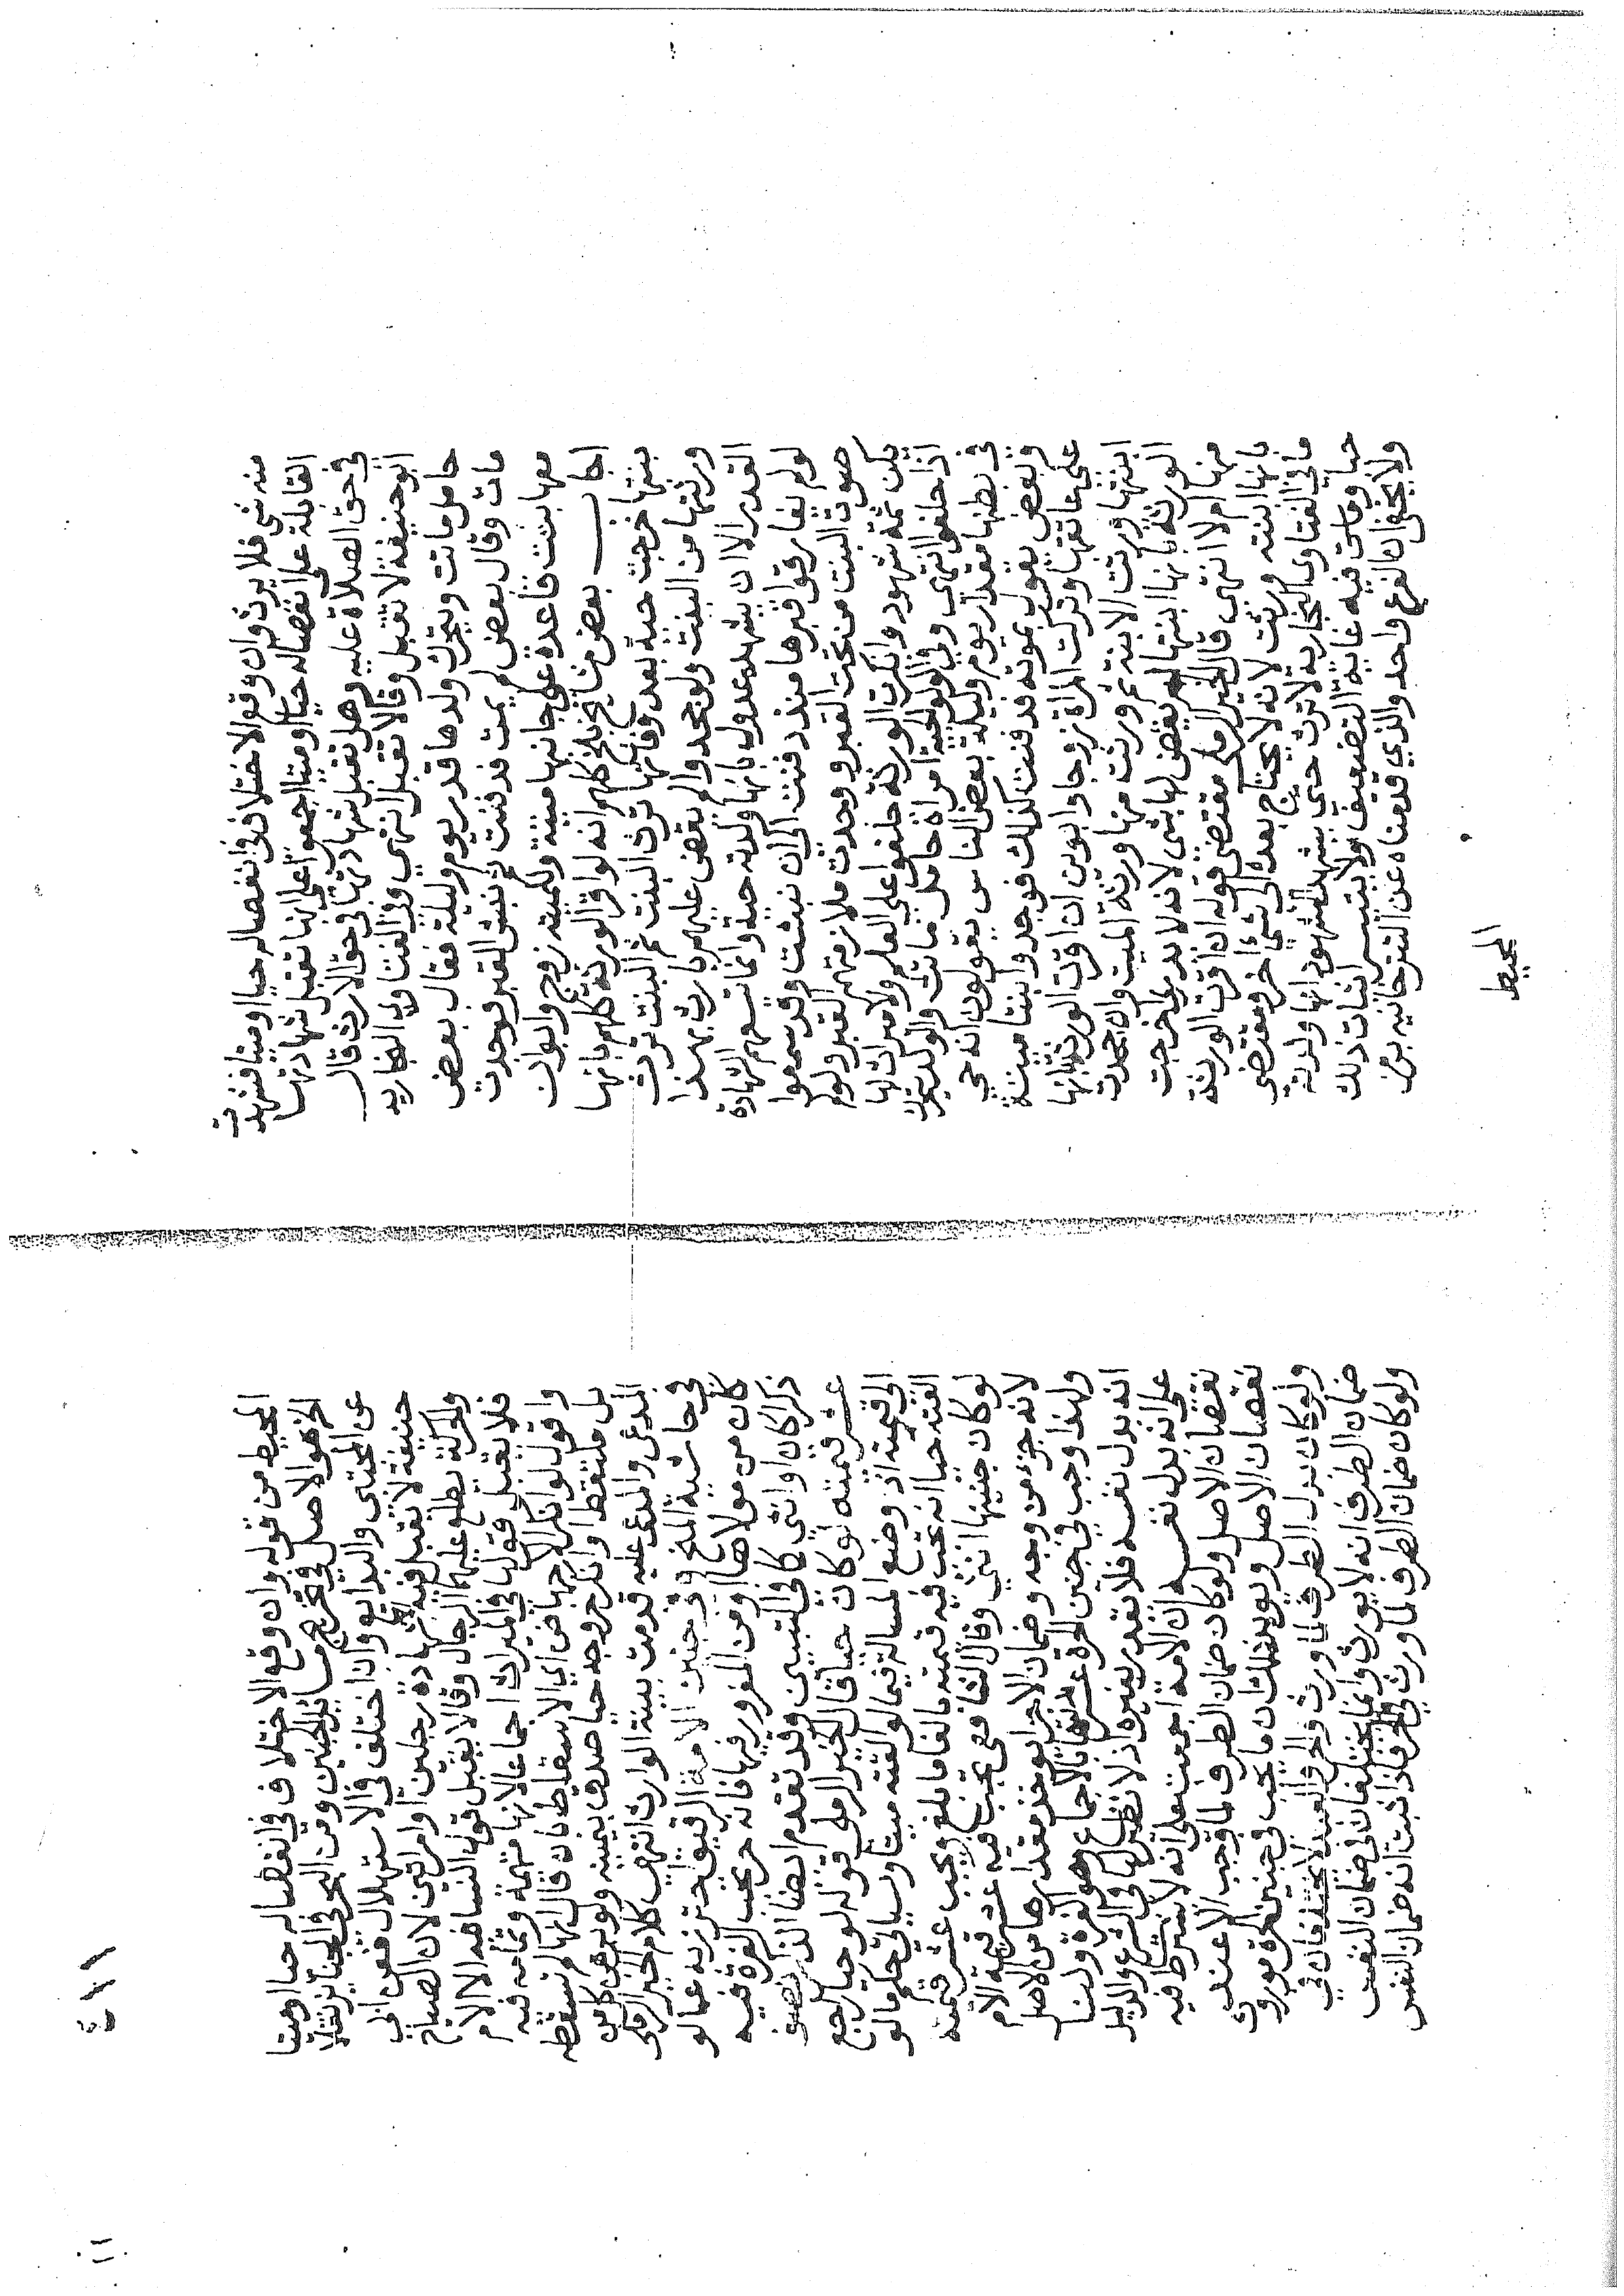 منه شي فلا يرث وان وقع الاختلاف في انفصاله حيا او ميتا فشهدت
القابلة على انفصاله حيا او ميتا اجمعوا على انها تقبل شهادتها
في حق الصلاة عليه وهل تقبل شهادتها في حق الارث قال
ابو حنيفة لا تقبل وقالا تقبل انتهى وفي الفتاوى البخارية
حامل ماتت ويتحرك ولدها قدر يوم وليلة فقال بعض
مات وقال بعض لم يمت فدفنت ثم نبش القبر فوجدت
معها بنت قاعدة على جانبها ميتة ولميتة زوج وابوان
اجاب بعض مشايخ بلخ كلهم انه لو اقر الورثة كلهم بانها
بنتها خرجت حية بعد وفاتها ترث البنت ثم البنت ترث
ورثتها من البنت ولو جحدوا لم يقض عليهم بارث بهذا
القدر الا ان يشهد عدول بانها ولدته حية وانما تسعهم الشهادة
لو لم يفارقوا قبرها منذ دفنت الى ان نبشت وقد سمعوا
صوت البنت من تحت القبر ووجدت ملازمتهم القبر ولو لم
يكن ثمة شهود وانكرت الورثة حلفوا على العلم ولا ميراث لها
اذا حلفوا انتهى وفي الولوالجية امراة حامل ماتت والولد يتحرك
في بطنها مقدار يوم وليلة بعض الناس يقولون انه حي
وبعض يقول بموته فدفنت كذلك فوجدوا بنتا ميتة
على عاتقها وتركت المراة زوجا وابوين ان اقرت الورثة بانها
ابنتها ورثت الابنة ثم ورثت منها ورثة الميت وان جحدت
الورثة بانها ابنتها لم يقض لها بشي لانه لا يدرى اخرجت
منها ام لا انتهى قال الخير الرملي مقتضى قوله ان اقرت الورثة
بانها ابنته ورثت لانه لا يحتاج بعده الى شي اخر ومقتضى
ما في الفتاوى البخارية لا ترث حتى يشهد الشهود انها ولدته
حيا ومات فيه غاية التضييق ولا يتيسر اثبات ذلك
ولا يخفى ان الفرع واحد والذي قدمناه عن التترخانية من
المحيط
المحيط من قوله وان وقع الاختلاف في انفصاله حيا او ميتا
الخ هو الاصل في تخريج مسائل الجنين ومن البحر في الجنائز نقلا
عن المجتبى والبدايع وان اختلف في الاستهلال فعن ابي
حنيفة لا يقبل فيه الا شهادة رجلين او رجل وامراتين لان الصياح
والحركة يطلع عليهما الرجال وقالا يقبل قول النسا فيه الا الام
فلا يقبل قولها في الميراث اجماعا لانها متهمة وتمامه فيه
واقول لو انكر الاجهاض اي الاسقاط بان قال انها لم تسقطه
بل ملتقط او انكر خروجه حيا صدق بيمينه ولو برهن كل من
المدعي والمدعى عليه قدمت بينة الوارث انتهى كلام الخير الرملي
في حاشية المنح في جنين الامة الرقيق احترز به عما لو
كان من مولاها او من المغرور فيها فانه حر تجب الغرة فيه
ذكرا كان او انثى كما في التبيين وقد تقدم ايضا الذكر نصف
عشر قيمته لو كان حيا قال الخير الرملي قوله لو حيا راجع
الى قيمته اذ وضع المسالة فيما لو القته ميتا وسياتي حكم ما لو
القته حيا انه تجب فيه قيمته بالغا ما بلغ ويجب عشر قيمته
لو كان جنينها انثى وقال الشافعي تجب فيه عشر قيمة الام
لانه جزء من وجه وضمان الاجزا يوخذ مقدارها من الاصل
ولهذا وجب في جنين الحرة عشر ديتها بالاجماع وهو الغرة ولنا
انه بدل نفسه فلا يقدر بغيره اذ لا نظير لها في الشرع والدليل
على انه بدل نفسه ان الامة اجمعت على انه لا يشترط فيه
نقصان الاصل ولو كان ضمان الطرف لما وجب الا عند
نقصان الاصل ويويد ذلك ان ما يجب في جنين الحرة موروث
ولو كان بدل الطرف لما ورث والحر والعبد لا يختلفان في
ضمان الطرف انه لا يورث وانما يختلفان في ضمان النفس
ولو كان ضمان الطرف لما ورث في الحر فاذا ثبت انه ضمان النفس